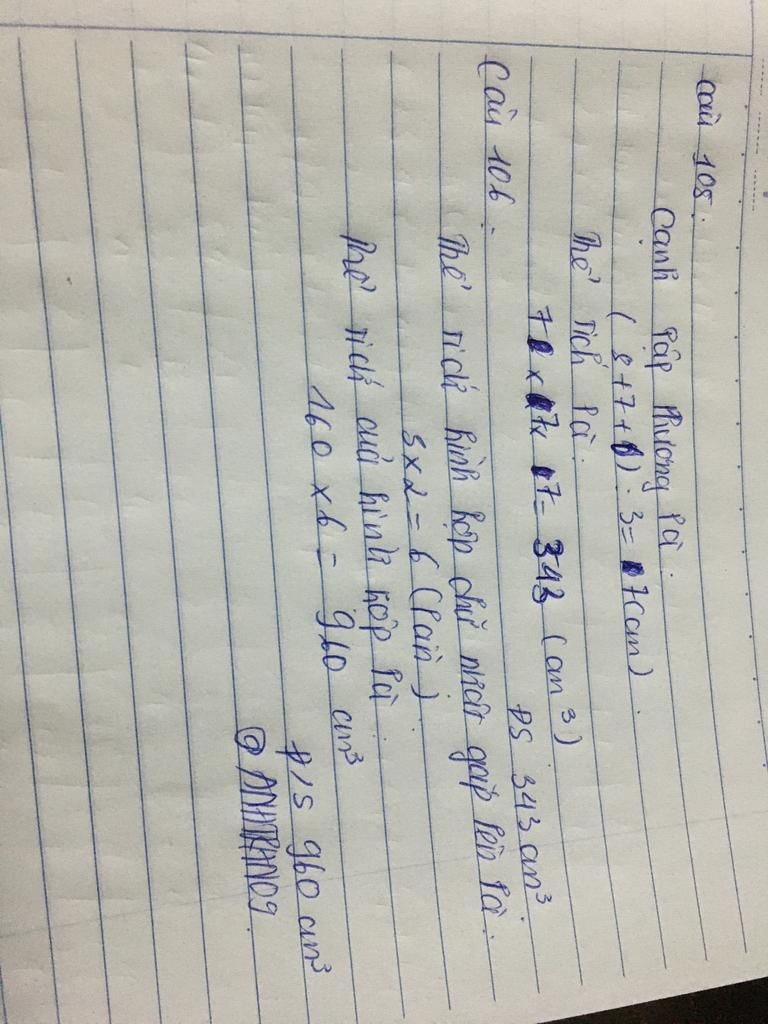 Câu 105:
Cạnh lập phương là:
(8+7+6):3=7(cm).
Thể tích là:
7 x 7 x 7 = 343 (cm³)
ĐS 343 cm³
Câu 106:
Thể tích hình hộp chữ nhật gấp lên là:
3 x 2 = 6 (lần)
Thể tích của hình hộp là
160 x 6 = 960 cm³
Đ/S 960 cm³